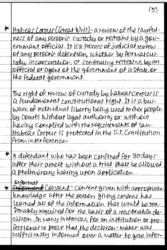 (5)
* Habeas Corpus (Great Writ) - a review of the lawful-
ness of any person's custody or restraint by a gov-
ernment official. It is a process of judicial review
of any person's detention, whether by formal cus-
tody, incarceration, or continuing restraint, by an
official or agent of the government of a state or
the federal government.
The right of review of custody by habeas corpus is
a fundamental constitutional right. It is a
of individual liberty being used to free people
by Courts without legal authority or without
complied with the requirements of law.
Habeas corpus is protected in the U.S. Constitution
from interference.
* A defendant who has been confined for 30 days
after their arrest without a trial shall be allowed
a preliminary hearing upon application.
* Informed Consent - Consent given with appropriate
knowledge after the person giving consent has
learned all of the information that would be rea-
sonably required for the basis of a reasonable de-
cision. In many instances, for an institution or pro-
fessional to prove that the decision-maker was
sufficiently informed over a matter to give infor-